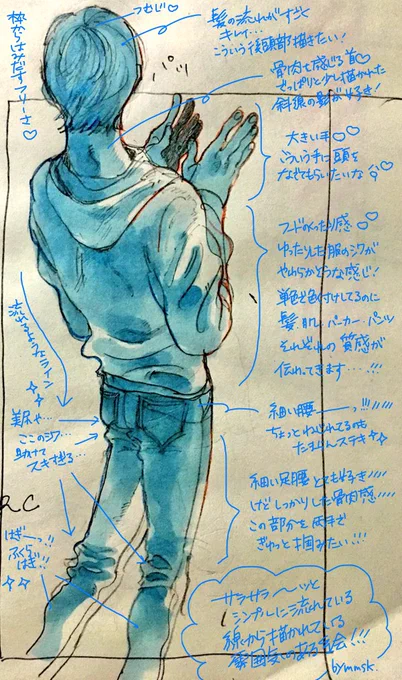 枠からはみだすフリーさ♡
つむじ♡
髪の流れがすごく
キレイ…
こういう後頭部描きたい!
パッ
骨肉を感じる首♡
でっぱりと少し描かれた
斜線の影が好き!
大きい手♡♡
こういう手に頭を
なでてもらいたいな
フードのぺったり感♡
ゆったりした服のシワが
やわらかそうな感じ!
単色で色付けしてるのに
髪、肌、パーカー、パンツ
それぞれの質感が
伝わってきます…!!
流れるようなライン
細い腰ーーっ!!
ちょっとねじれてるのも
たまんないステキ
美尻や…
ここのシワ…
助けて
スキすぎる…
RC
細い足腰とても好き
けどしっかりした骨肉感
この部分を両手で
ぎゅっと掴みたい!!
はぎーっ!!
ふくら
はぎ!!
サラサラ〜ッと
シンプルに流れている
線から描かれている
雰囲気のある絵!!!
by mmsk.